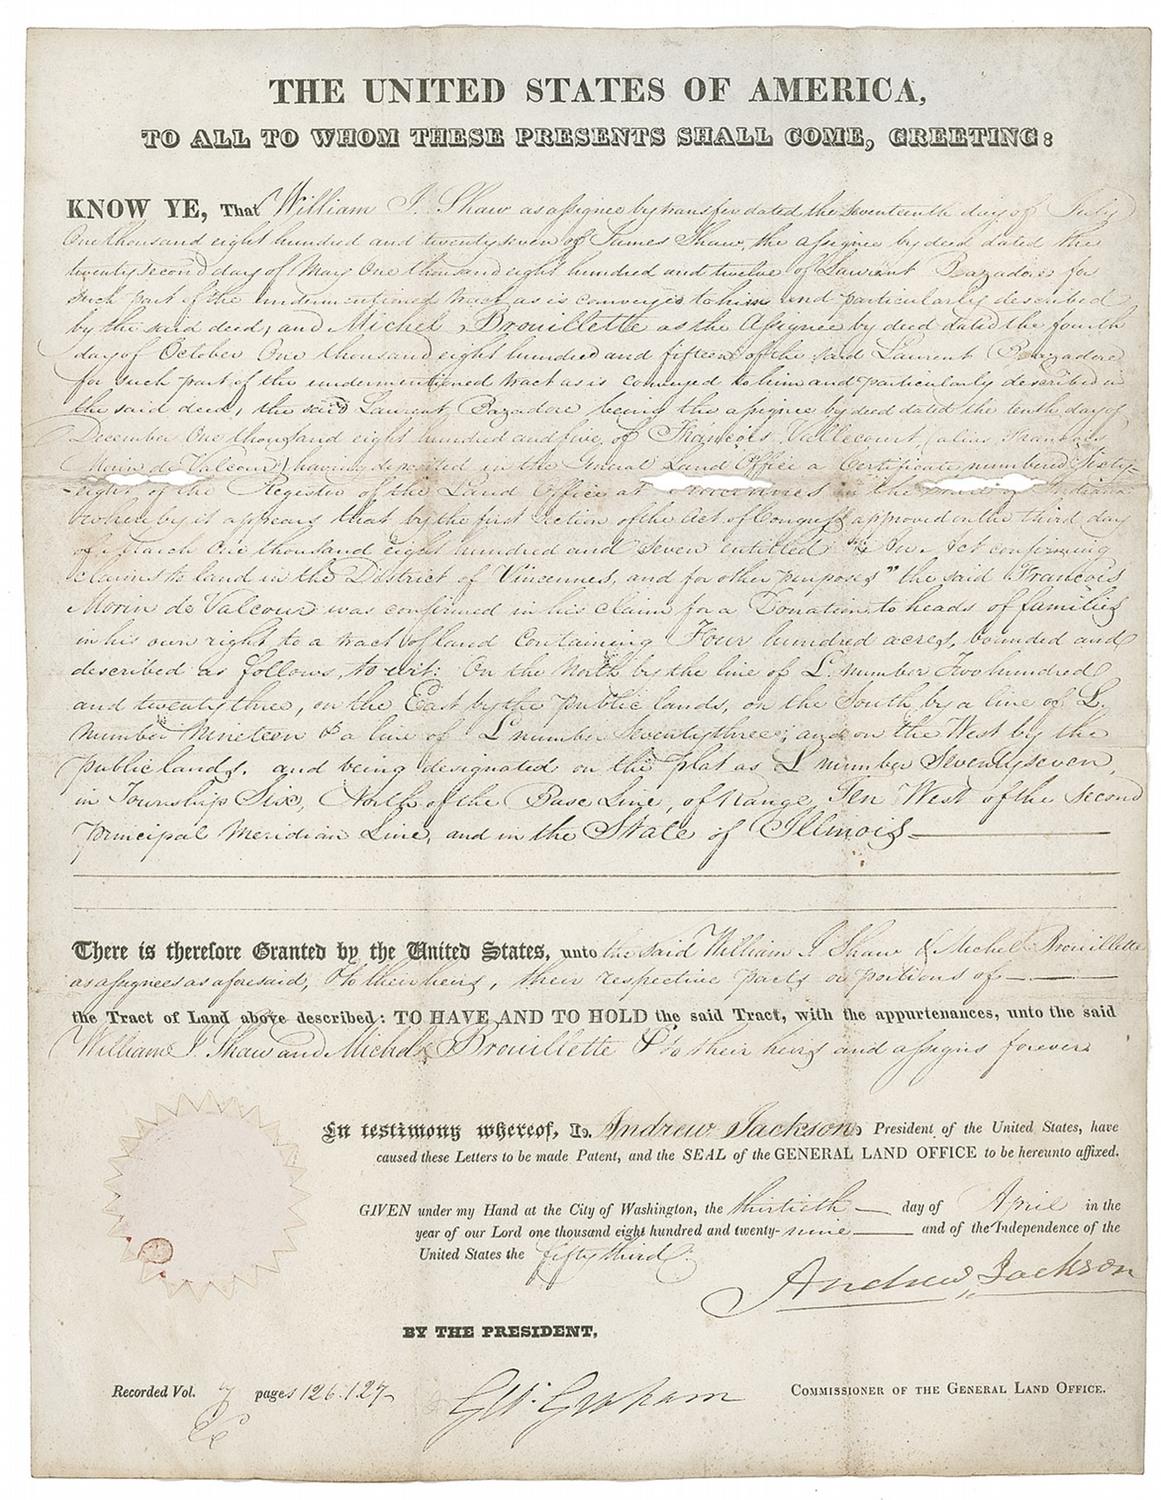 THE UNITED STATES OF AMERICA,
TO ALL TO WHOM THESE PRESENTS SHALL COME, GREETING:
KNOW YE, That William I. Shaw as assignee by transfer dated the seventeenth day of July
One thousand eight hundred and twenty seven of James Shaw, the assignee by deed dated the
twenty second day of May One thousand eight hundred and twelve of Laurent Bazadore for
such part of the undermentioned tract as is conveyed to him and particularly described
by the said deed, and Michel Brouillette as the Assignee by deed dated the fourth
day of October One thousand eight hundred and fifteen of the said Laurent Bazadore
for such part of the undermentioned tract as is conveyed to him and particularly described in
the said deed, the said Laurent Bazadore being the assignee by deed dated the tenth day of
December One thousand eight hundred and five, of Francois Vallecourt, (alias Francois
Morin de Valcour) having deposited in the General Land Office a Certificate numbered Sixty-
eight of the Register of the Land Office at Vincennes in the of Indiana
whereby it appears that by the first section of the Act of Congress approved on the third day
of March One thousand eight hundred and seven entitled "An Act confirming
claims to land in the District of Vincennes, and for other purposes" the said Francois
Morin de Valcour was confirmed in his claim for a Donation to heads of families
in his own right to a tract of land containing Four hundred acres, bounded and
described as follows, to wit: On the North by the line of L. number Two hundred
and twenty three, on the East by the public lands, on the South by a line of L.
number Nineteen & a line of L number Seventy three; and on the West by the
public lands. and being designated on the plat as L number Seventy seven,
in Township Six, North of the Base Line, of Range Ten West of the Second
Principal Meridian Line, and in the State of Illinois
There is therefore Granted by the United States, unto the said William I Shaw & Michel Brouillette
as assignees as aforesaid, & to their heirs, their respective parts or portions of
the Tract of Land above described: TO HAVE AND TO HOLD the said Tract, with the appurtenances, unto the said
William I. Shaw and Michel Brouillette & to their heirs and assigns forever.
In testimony whereof, I, Andrew Jackson, President of the United States, have
caused these Letters to be made Patent, and the SEAL of the GENERAL LAND OFFICE to be hereunto affixed.
GIVEN under my Hand at the City of Washington, the thirtieth day of April in the
year of our Lord one thousand eight hundred and twenty-nine and of the Independence of the
United States the fifty third.
Andrew Jackson
BY THE PRESIDENT,
Recorded Vol. 7 pages 126.127 Geo: Graham COMMISSIONER OF THE GENERAL LAND OFFICE.